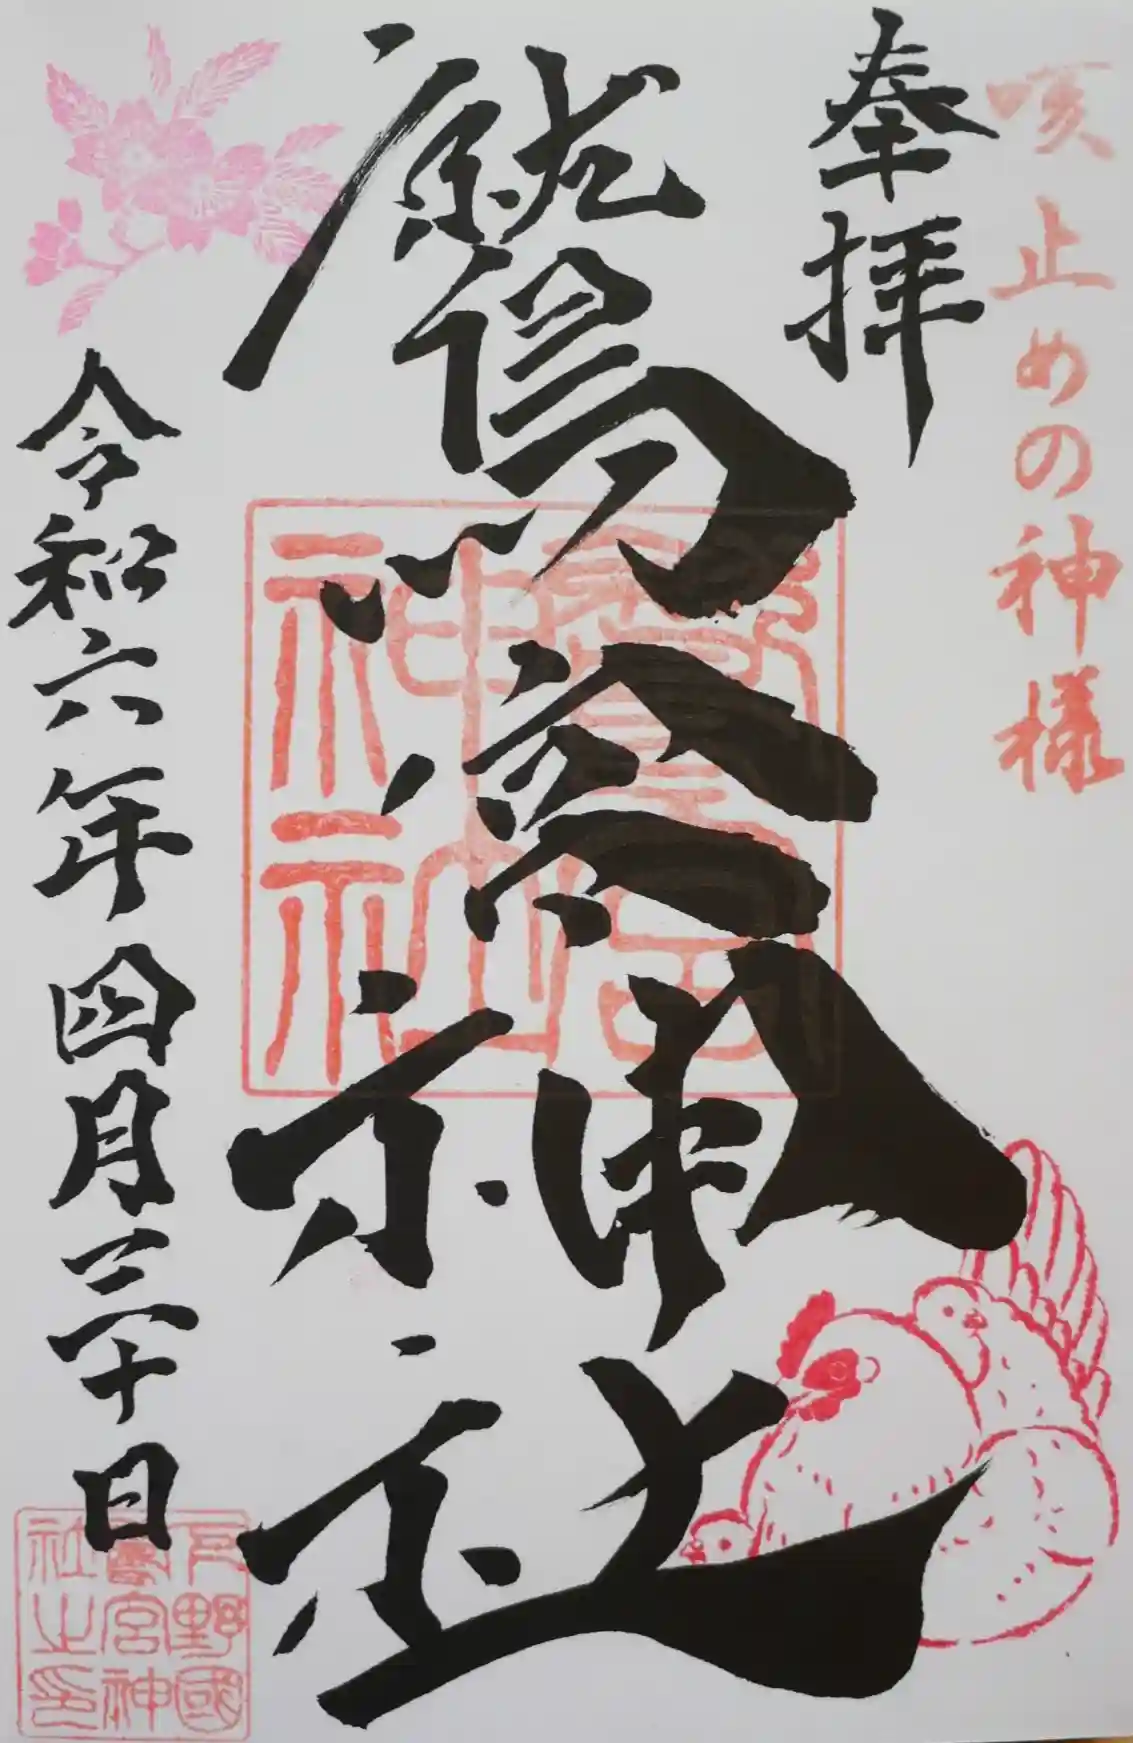 咳止めの神様
奉拝
鷲宮神社
鷲宮
神社
令和六年四月三十日
下野國
鷲宮神
社之印